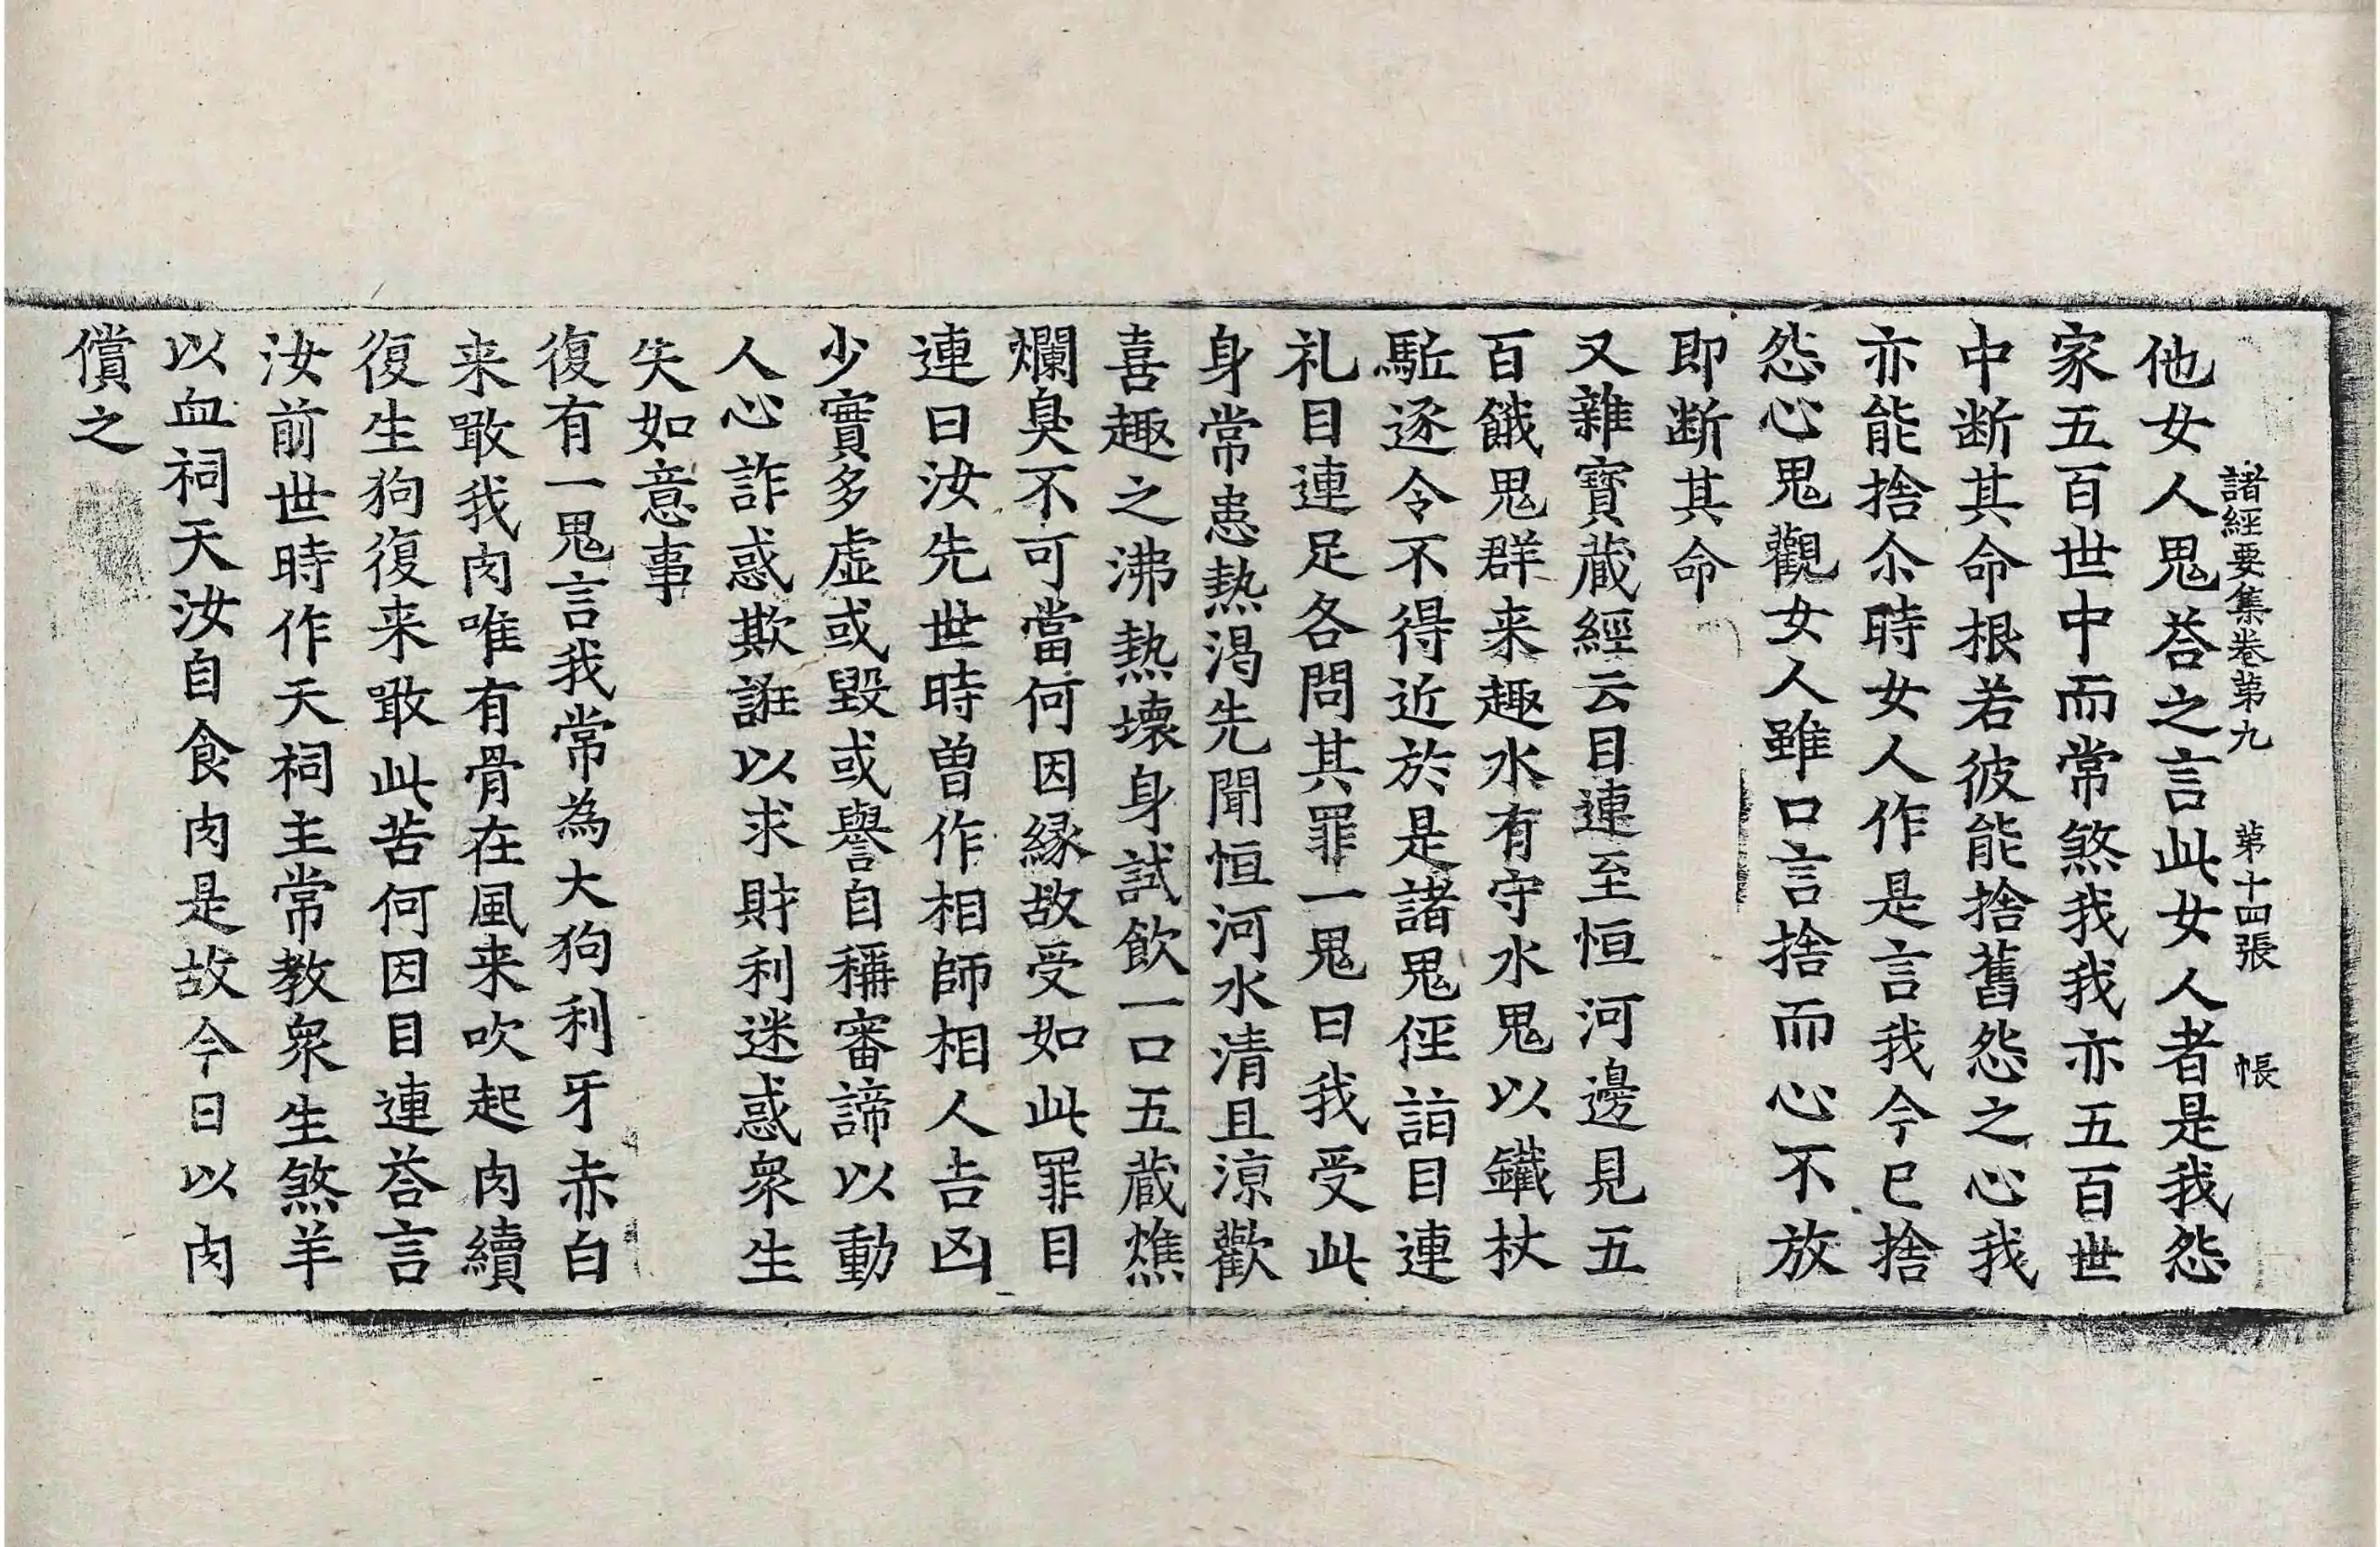 諸經要集卷第九 第十四張 帳
他女人鬼荅之言此女人者是我怨
家五百世中而常煞我我亦五百世
中断其命根若彼能捨舊怨之心我
亦能捨尒時女人作是言我今已捨
怨心鬼觀女人雖口言捨而心不放
即断其命
又雜寶藏經云目連至恒河邊見五
百餓鬼群来趣水有守水鬼以鐵杖
駈逐令不得近於是諸鬼俓詣目連
礼目連足各問其罪一鬼曰我受此
身常患熱渴先聞恒河水清且涼歡
喜趣之沸熱壞身試飲一口五藏燋
爛臭不可當何因緣故受如此罪目
連曰汝先世時曾作相師相人吉凶
少實多虛或毀或譽自稱審諦以動
人心詐惑欺誑以求財利迷惑衆生
失如意事
復有一鬼言我常為大狗利牙赤白
来噉我肉唯有骨在風来吹起肉續
復生狗復来噉此苦何因目連荅言
汝前世時作天祠主常教衆生煞羊
以血祠天汝自食肉是故今日以肉
償之